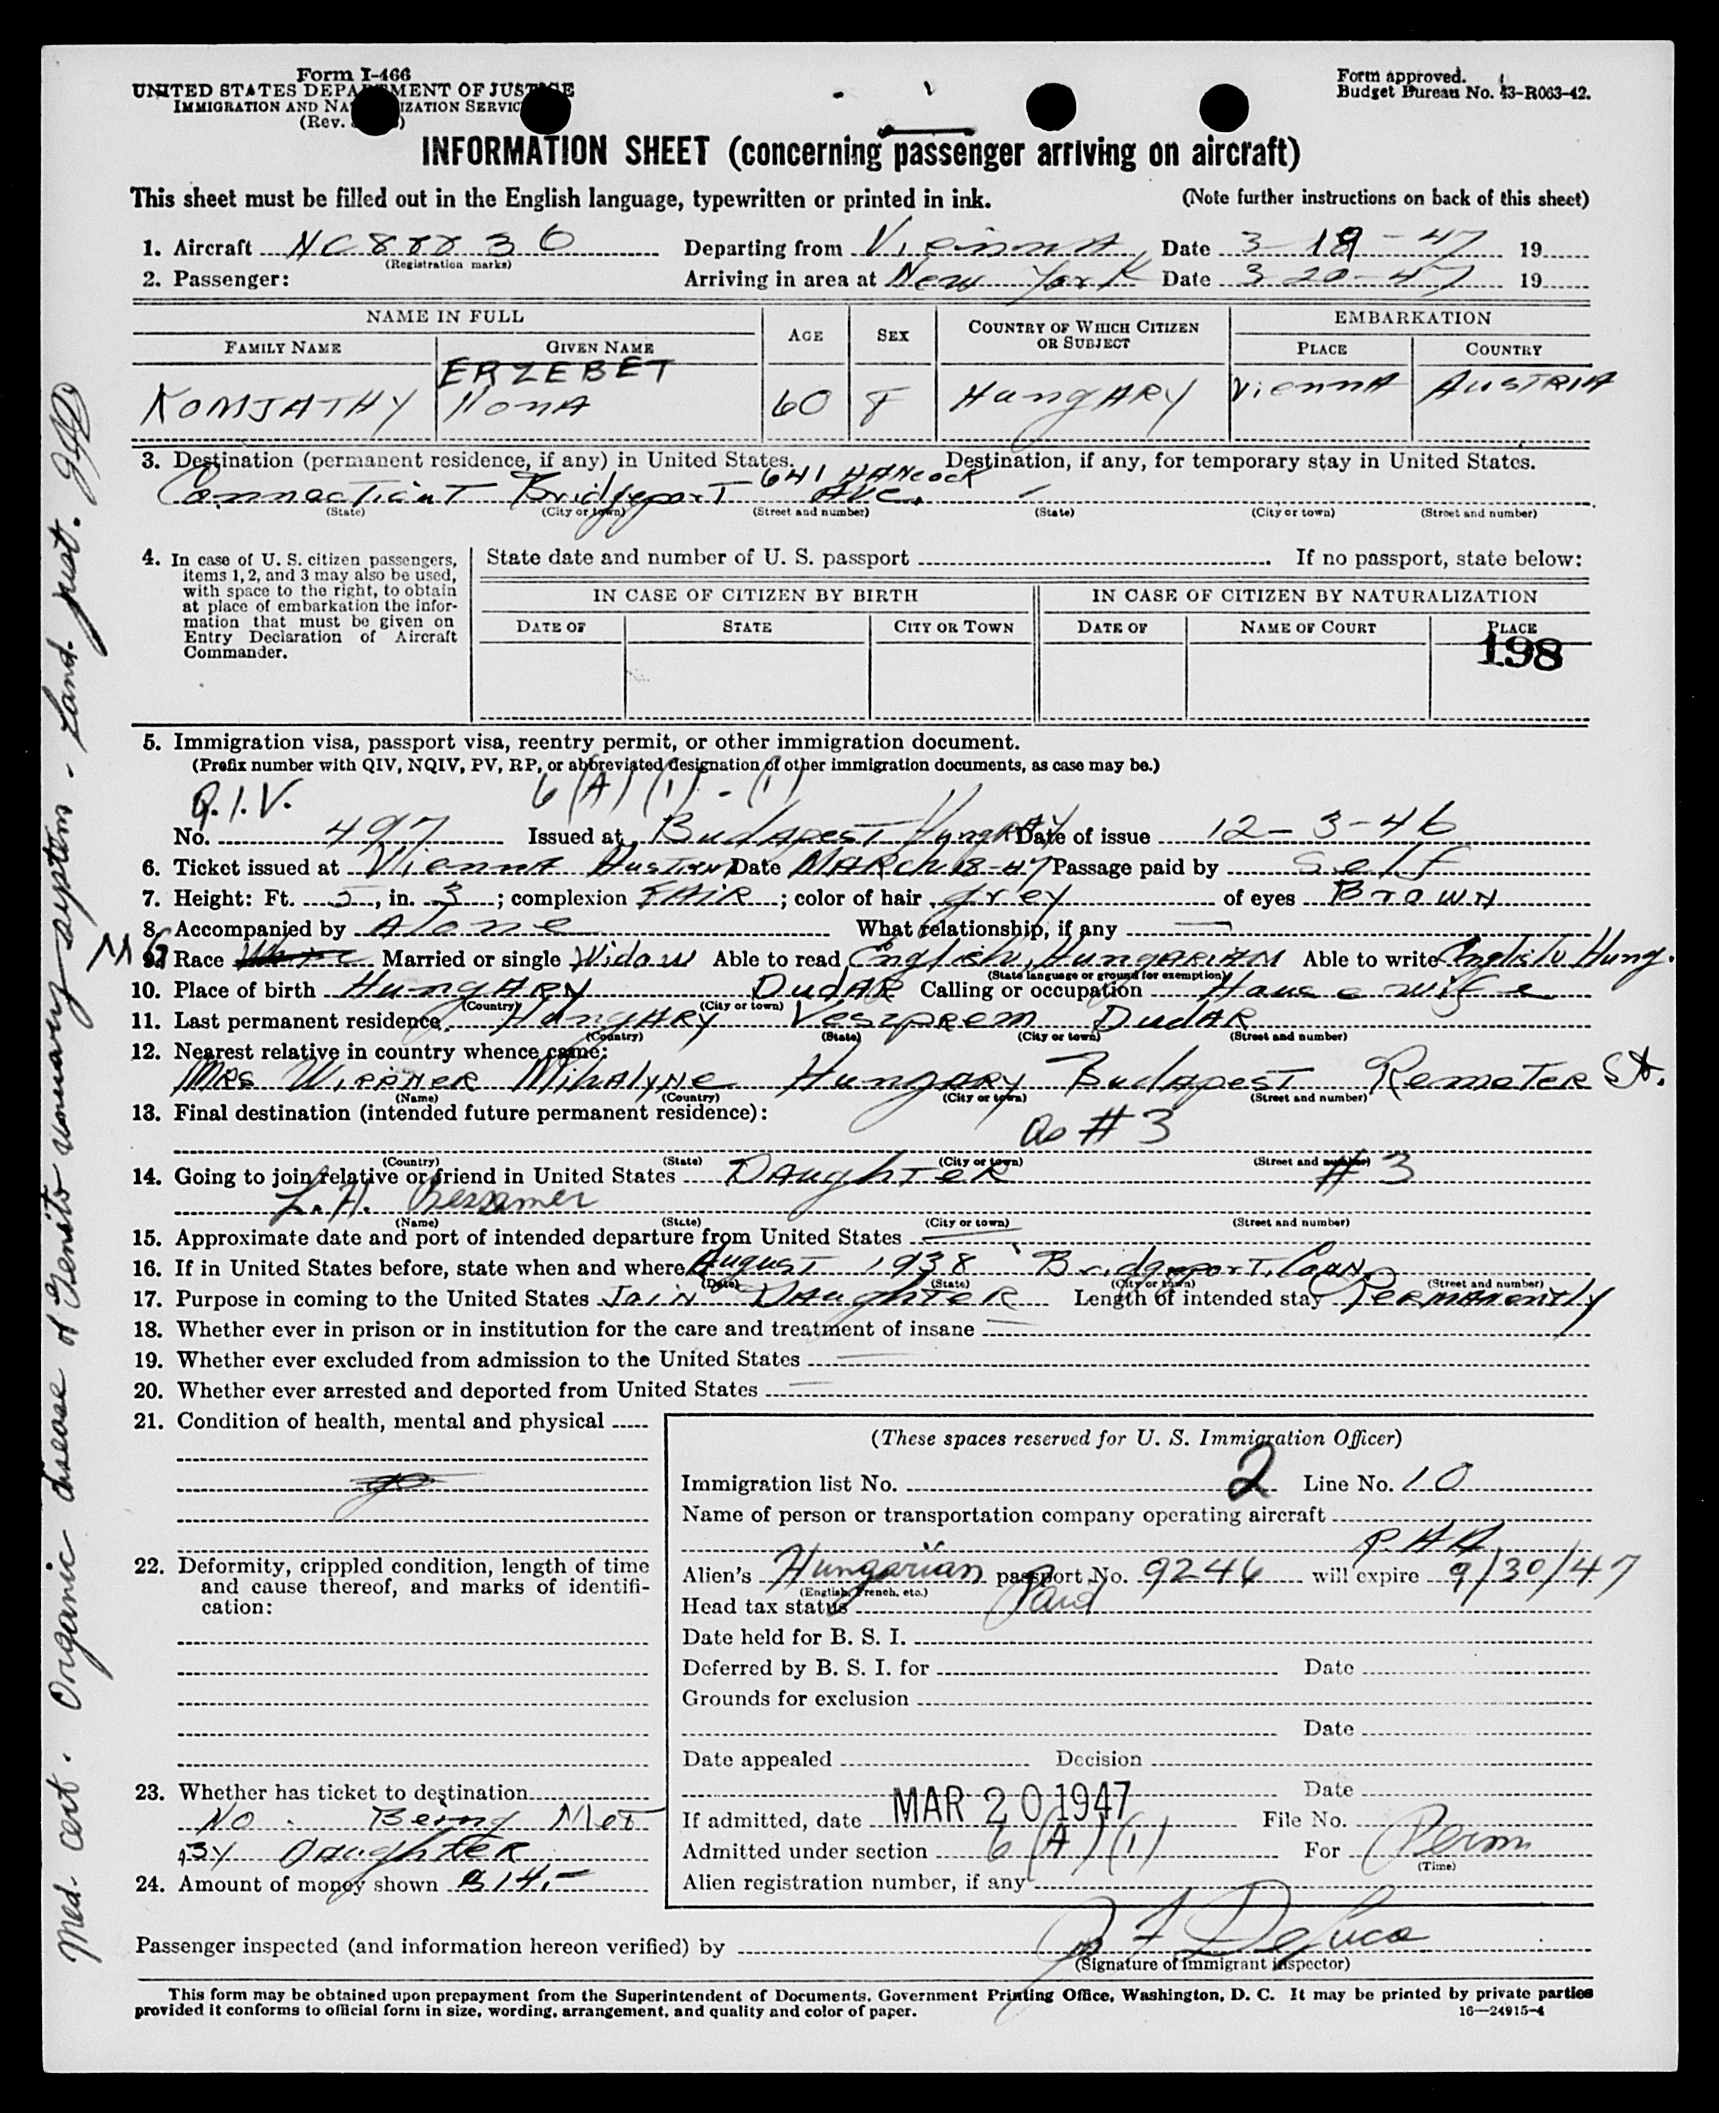 Form I-466
UNITED STATES DEPARTMENT OF JUSTICE
IMMIGRATION AND NATURALIZATION SERVICE
(Rev.
Form approved.
Budget Bureau No. 43-R063-42.
INFORMATION SHEET (concerning passenger arriving on aircraft)
This sheet must be filled out in the English language, typewritten or printed in ink. (Note further instructions on back of this sheet)
1. Aircraft NC88836 Departing from Vienna Date 3-19-47 19
(Registration marks)
2. Passenger: Arriving in area at New York Date 3-20-47 19
NAME IN FULL AGE SEX COUNTRY OF WHICH CITIZEN OR SUBJECT EMBARKATION
FAMILY NAME GIVEN NAME PLACE COUNTRY
ERZEBET
KOMJATHY Ilona 60 F HungARY ViennA AUSTRIA
3. Destination (permanent residence, if any) in United States. Destination, if any, for temporary stay in United States.
Connecticut Bridgeport 641 HANcock Ave.
(State) (City or town) (Street and number) (State) (City or town) (Street and number)
4. In case of U. S. citizen passengers, items 1, 2, and 3 may also be used, with space to the right, to obtain at place of embarkation the information that must be given on Entry Declaration of Aircraft Commander.
State date and number of U. S. passport If no passport, state below:
IN CASE OF CITIZEN BY BIRTH IN CASE OF CITIZEN BY NATURALIZATION
DATE OF STATE CITY OR TOWN DATE OF NAME OF COURT PLACE
198
5. Immigration visa, passport visa, reentry permit, or other immigration document.
(Prefix number with QIV, NQIV, PV, RP, or abbreviated designation of other immigration documents, as case may be.)
Q.I.V. 6(A)(1)-(1)
No. 497 Issued at Budapest Hungary Date of issue 12-3-46
6. Ticket issued at Vienna Austria Date MARCh 18-47 Passage paid by Self
7. Height: Ft. 5, in. 3; complexion FAIR; color of hair grey of eyes Brown
8. Accompanied by Alone What relationship, if any —
MG
9. Race White Married or single Widow Able to read English, HUNGARIAN Able to write English Hung.
(State language or ground for exemption)
10. Place of birth HungARY DudAR Calling or occupation House wife
(Country) (City or town)
11. Last permanent residence HungARY VeszpReM DudAR
(Country) (State) (City or town) (Street and number)
12. Nearest relative in country whence came:
MRS WIPPNER MihAlyNE HungARY BudApesT RemeTeR St.
(Name) (Country) (City or town) (Street and number)
13. Final destination (intended future permanent residence):
As #3
(Country) (State) (City or town) (Street and number)
14. Going to join relative or friend in United States DAughTeR #3
L. H. Bessemer
(Name) (State) (City or town) (Street and number)
15. Approximate date and port of intended departure from United States —
16. If in United States before, state when and where August 1938 BridgeporT, Conn.
(Date) (State) (City or town) (Street and number)
17. Purpose in coming to the United States Join DAughTeR Length of intended stay PermAnently
18. Whether ever in prison or in institution for the care and treatment of insane —
19. Whether ever excluded from admission to the United States —
20. Whether ever arrested and deported from United States —
21. Condition of health, mental and physical
22. Deformity, crippled condition, length of time and cause thereof, and marks of identification:
23. Whether has ticket to destination
No. Being Met
By DAughteR
24. Amount of money shown $14.-
(These spaces reserved for U. S. Immigration Officer)
Immigration list No. 2 Line No. 10
Name of person or transportation company operating aircraft
PAA
Alien's Hungarian passport No. 9246 will expire 9/30/47
(English, French, etc.)
Head tax status Paid
Date held for B. S. I.
Deferred by B. S. I. for Date
Grounds for exclusion
Date
Date appealed Decision
Date
If admitted, date MAR 20 1947 File No.
Admitted under section 6(A)(1) For Perm
(Time)
Alien registration number, if any
Passenger inspected (and information hereon verified) by J F DeLuca
(Signature of immigrant inspector)
This form may be obtained upon prepayment from the Superintendent of Documents, Government Printing Office, Washington, D. C. It may be printed by private parties
provided it conforms to official form in size, wording, arrangement, and quality and color of paper. 16—24915-4
Med. cert. Organic disease of Genito urinary system - Land. just.